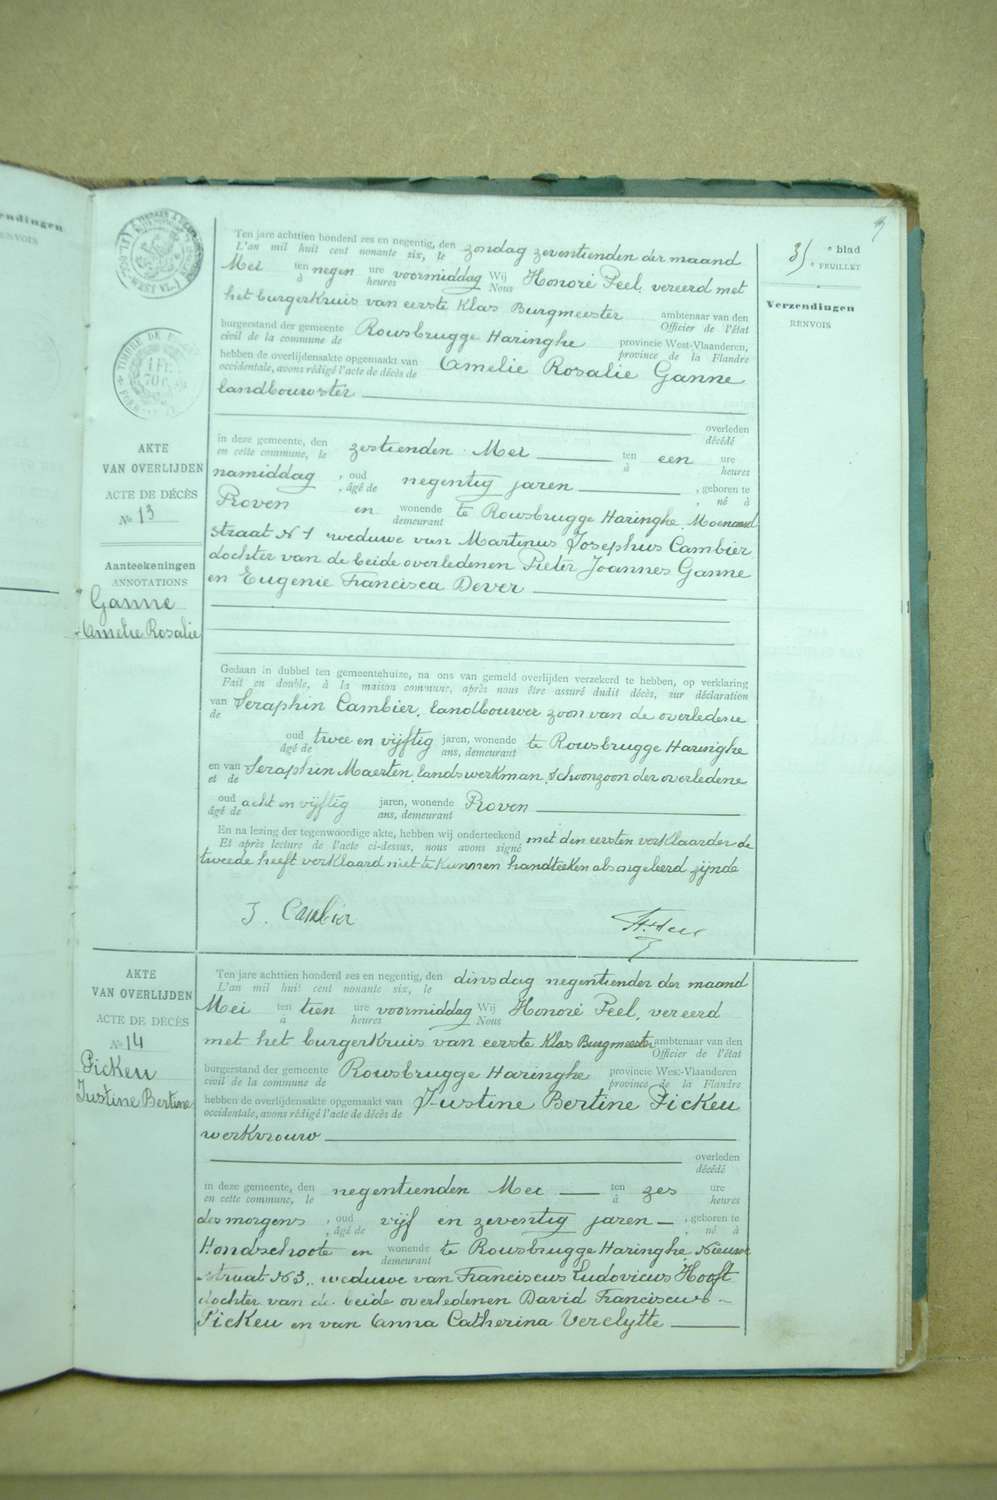 zendingen
RENVOIS
3
e blad
e FEUILLET
Verzendingen
RENVOIS
TIMBRE DE
AKTE
VAN OVERLIJDEN
ACTE DE DÉCÈS
No 13
Aanteekeningen
ANNOTATIONS
Ganne
Amelie Rosalie
Ten jare achttien honderd zes en negentig, den zondag zeventienden der maand
L'an mil huit cent nonante six, le
Mei ten negen ure voormiddag Wij Honoré Peel, vereerd met
à heures Nous
het burgerkruis van eerste Klas Burgmeester ambtenaar van den
Officier de l'état
burgerstand der gemeente Rousbrugge Haringhe provincie West-Vlaanderen,
civil de la commune de province de la Flandre
hebben de overlijdensakte opgemaakt van Amelie Rosalie Ganne
occidentale, avons rédigé l'acte de décès de
landbouwster
overleden
décédé
in deze gemeente, den zestienden Mei ten een ure
en cette commune, le à heures
namiddag , oud negentig jaren , geboren te
, âgé de , né à
Proven en wonende te Rousbrugge Haringhe,
demeurant
straat N 1 weduwe van Martinus Josephus Cambier
dochter van de beide overledenen Pieter Joannes Ganne
en Eugenie Francisca Dever
Gedaan in dubbel ten gemeentehuize, na ons van gemeld overlijden verzekerd te hebben, op verklaring
Fait en double, à la maison commune, après nous être assuré dudit décès, sur déclaration
van Seraphin Cambier, landbouwer zoon van de overledene
de
oud twee en vijftig jaren, wonende te Rousbrugge Haringhe
âgé de ans, demeurant
en van Seraphin Maerten, landswerkman, schoonzoon der overledene
et de
oud acht en vijftig jaren, wonende Proven
âgé de ans, demeurant
En na lezing der tegenwoordige akte, hebben wij onderteekend met den eersten verklaarder de
Et après lecture de l'acte ci-dessus, nous avons signé
tweede heeft verklaard niet te kunnen handteeken als ongeleerd zijnde
Cambier
AKTE
VAN OVERLIJDEN
ACTE DE DÉCÈS
No 14
Pickeu
Justine Bertine
Ten jare achttien honderd zes en negentig, den dinsdag negentienden der maand
L'an mil huit cent nonante six, le
Mei ten tien ure voormiddag Wij Honoré Peel, vereerd
à heures Nous
met het burgerkruis van eerste Klas Burgmeester ambtenaar van den
Officier de l'état
burgerstand der gemeente Rousbrugge Haringhe provincie West-Vlaanderen
civil de la commune de province de la Flandre
hebben de overlijdensakte opgemaakt van Justine Bertine Pickeu
occidentale, avons rédigé l'acte de décès de
werkvrouw
overleden
décédé
in deze gemeente, den negentienden Mei ten zes ure
en cette commune, le à heures
des morgens , oud vijf en zeventig jaren , geboren te
, âgé de , né à
Hondschoote en wonende te Rousbrugge Haringhe Nieuw
demeurant
straat N 3, weduwe van Franciscus Ludovicus Hooft
dochter van de beide overledenen David Franciscus
Pickeu en van Anna Catherina Verclytte